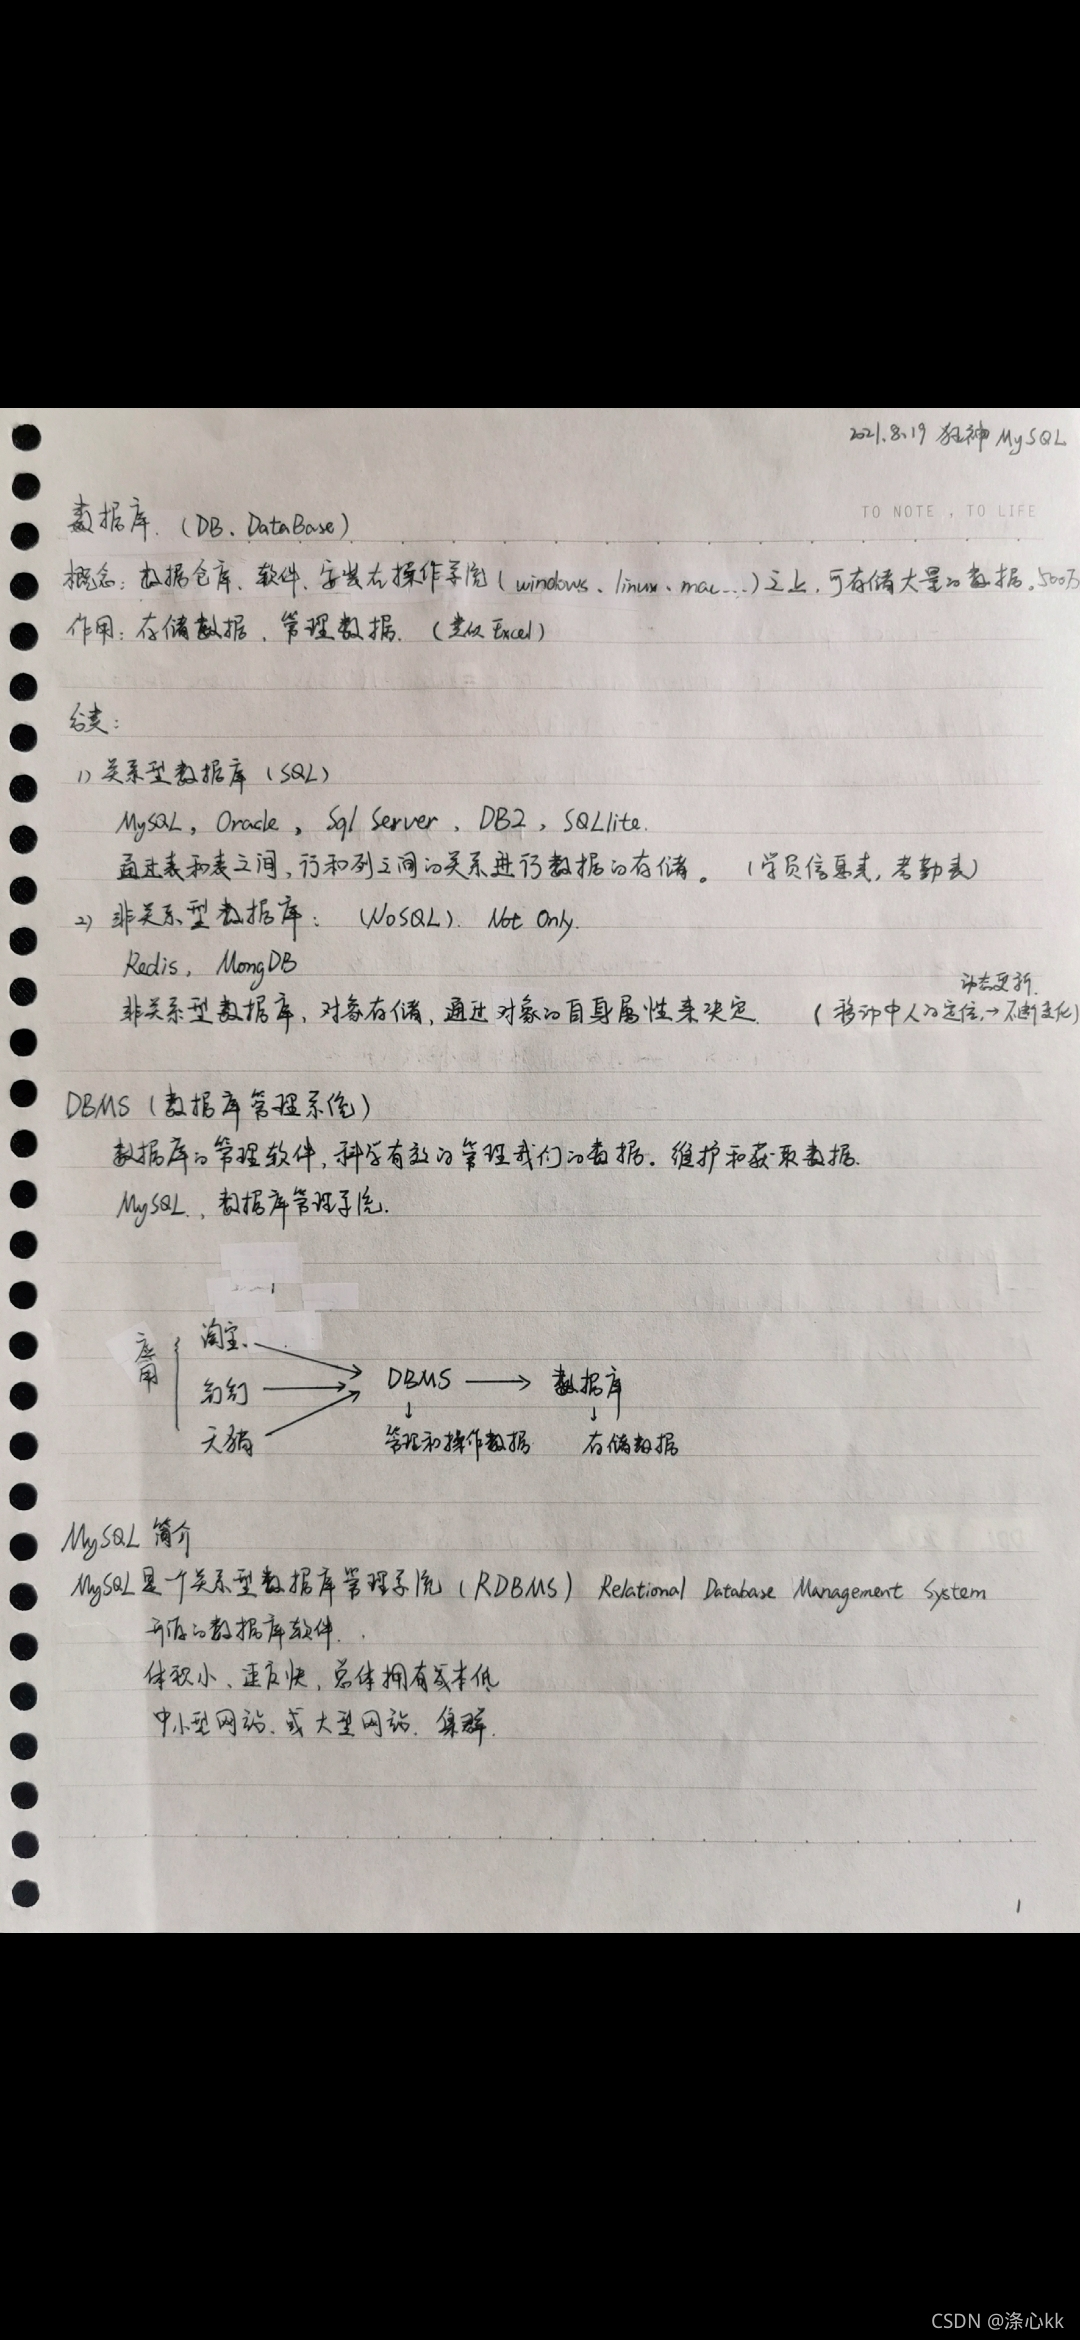 2021.8.19 狂神 MySQL
TO NOTE , TO LIFE
数据库.（DB、DataBase）
概念：数据仓库、软件、安装在操作系统（windows、linux、mac...）之上，可存储大量的数据。500万
作用：存储数据、管理数据.（类似Excel）
分类：
1）关系型数据库（SQL）
MySQL，Oracle，Sql Server、DB2，SQLlite.
通过表和表之间，行和列之间的关系进行数据的存储。（学员信息表，考勤表）
2）非关系型数据库：（NoSQL）. Not Only.
Redis，MongDB
动态更新.
非关系型数据库，对象存储，通过对象的自身属性来决定.（移动中人的定位，→不断变化）
DBMS（数据库管理系统）
数据库的管理软件，科学有效的管理我们的数据。维护和获取数据.
MySQL.，数据库管理系统.
应用
淘宝.
钉钉
天猫
DBMS → 数据库
↓ ↓
管理和操作数据 存储数据
MySQL 简介
MySQL是一个关系型数据库管理系统（RDBMS）Relational Database Management System
开源的数据库软件.
体积小、速度快，总体拥有成本低
中小型网站、或大型网站. 集群.
1
CSDN @涤心kk